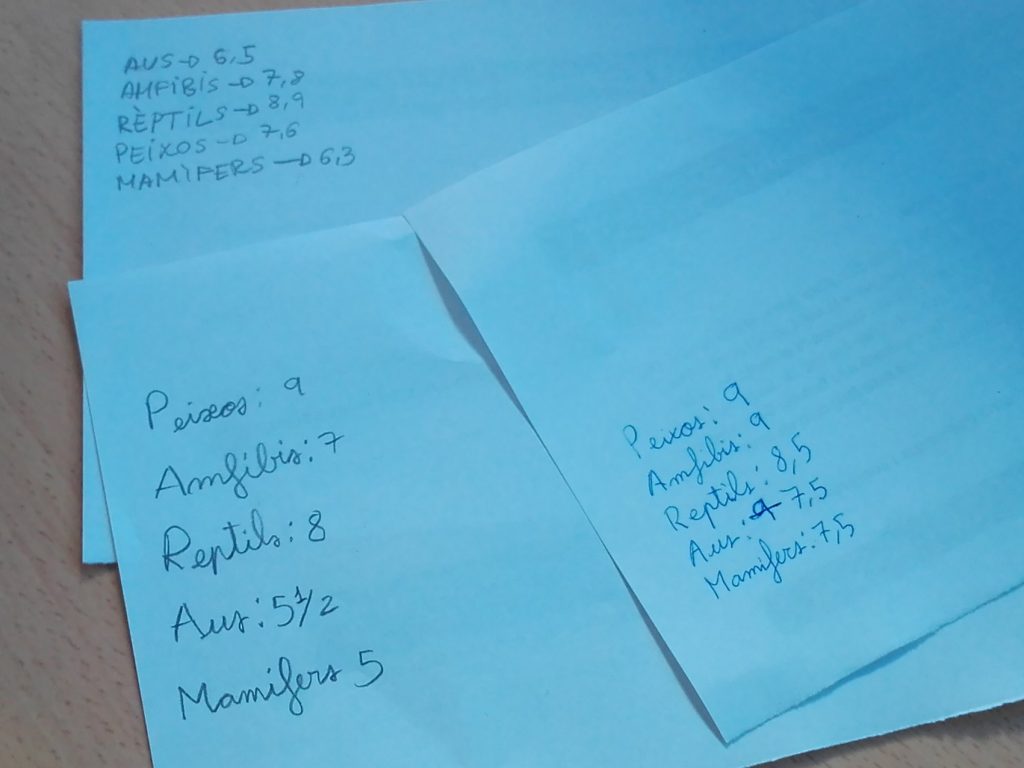 AUS→ 6,5
AMFIBIS → 7,8
RÈPTILS → 8,9
PEIXOS → 7,6
MAMÍFERS → 6,3
Peixos: 9
Amfibis: 7
Reptils: 8
Aus: 5 1/2
Mamifers 5
Peixos: 9
Amfibis: 9
Reptils: 8,5
Aus: 9 7,5
Mamifers: 7,5